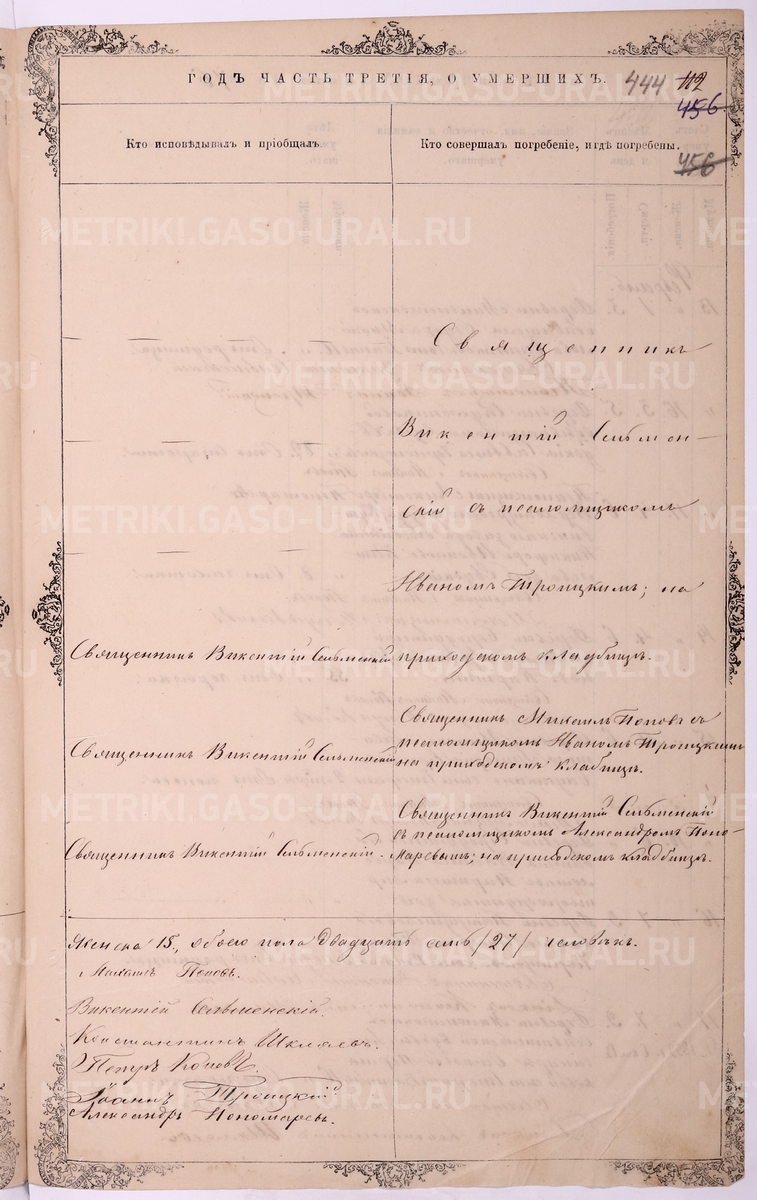 ГОДЪ ЧАСТЬ ТРЕТІЯ, О УМЕРШИХЪ.
444 112
456.
456
Кто исповѣдывалъ и пріобщалъ.
Кто совершалъ погребеніе, и гдѣ погребены.
METRIKI.GASO-URAL.RU
Священникъ
Викентій
скій съ псаломщикомъ
Иваномъ Троицкимъ; на
приходскомъ кладбищѣ.
Священникъ Викентій
Священникъ Михаилъ Поповъ съ
псаломщикомъ Иваномъ Троицкимъ
на приходскомъ кладбищѣ.
Священникъ Викентій
Священникъ Викентій
съ псаломщикомъ Александромъ Поно-
маревымъ; на приходскомъ кладбищѣ.
Священникъ Викентій
Женска 15, обоего пола двадцать семь /27/ человѣкъ.
Михаилъ Поповъ.
Викентій
Константинъ Шкляевъ.
Петръ Поповъ
Іоаннъ Троицкій
Александръ Пономаревъ.